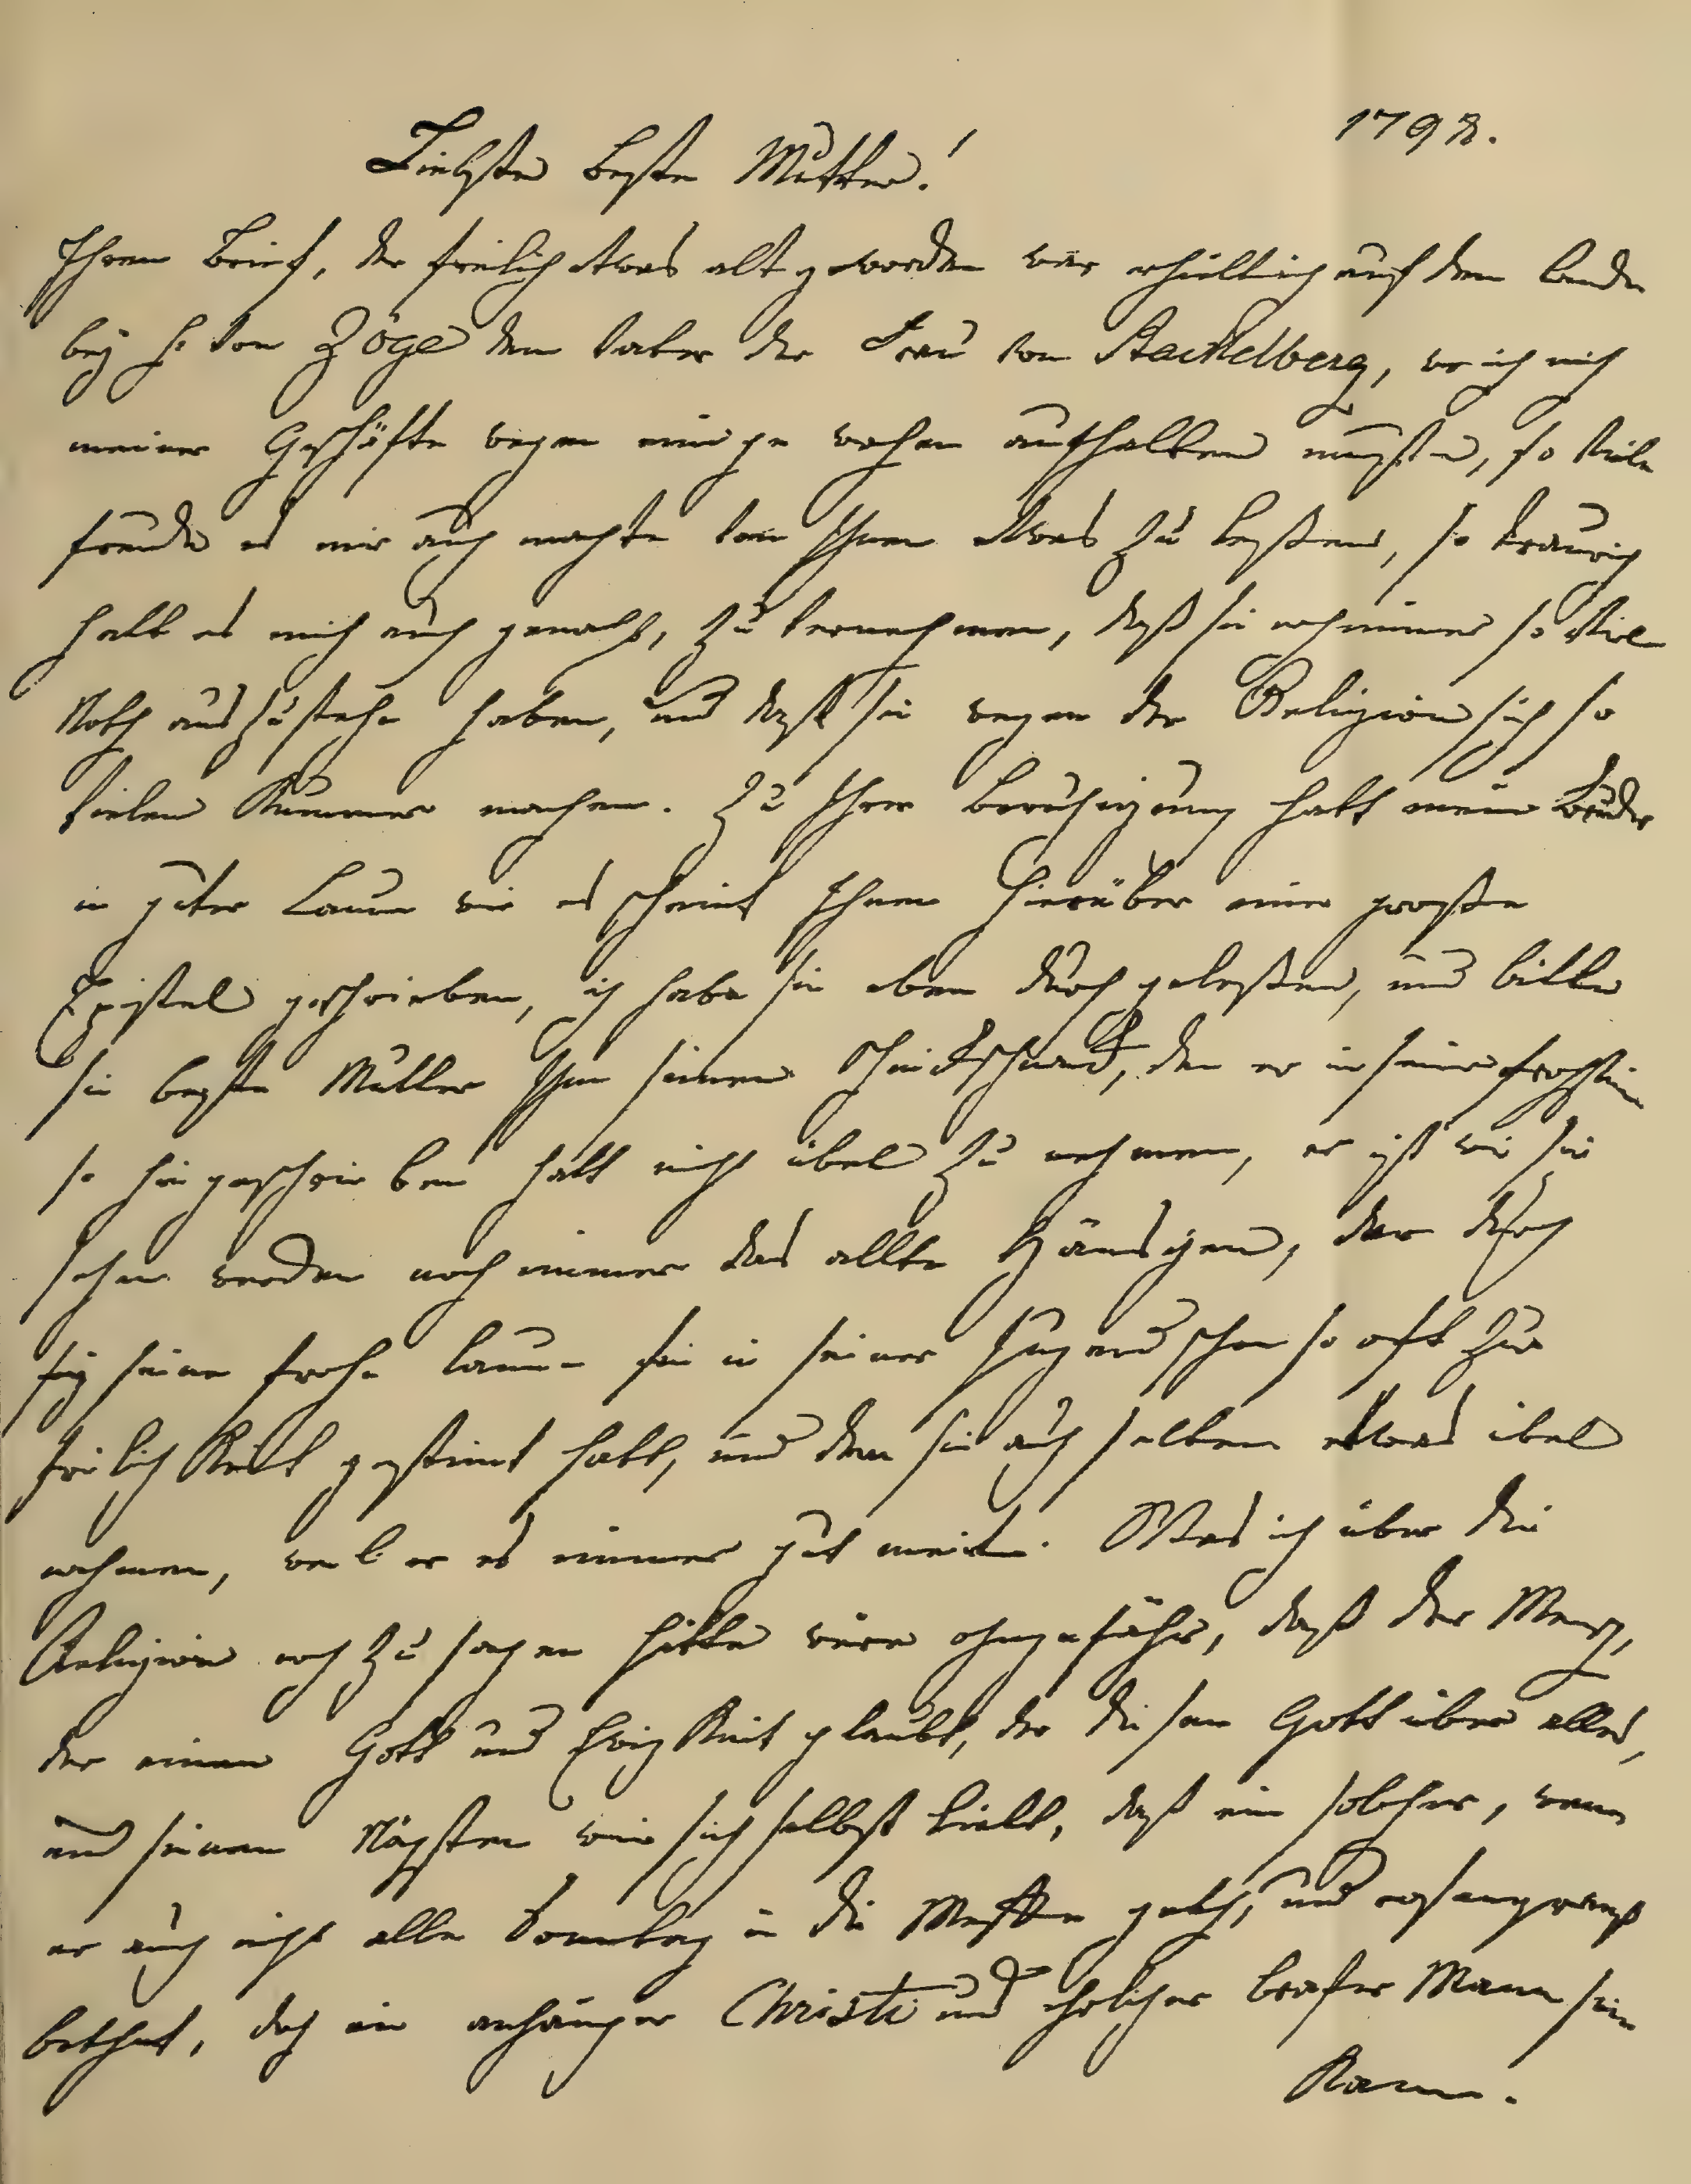 1798.
Liebste beste Mutter!
Ihren Brief, der freilich etwas alt geworden war erhielt ich auf dem Lande
bey H: von Zöge dem Vater der Frau von Stackelberg, wo ich mich
meiner Geschäfte wegen einige wochen aufhalten muste, so viele
freude es mir auch machte von Ihnen etwas zu leßen, so traurig
hatt es mich auch gemacht, zu vernehmen, daß sie noch immer so viel
Noth auszustehn haben, und daß sie wegen der Religion sich so
vielen Kummer machen. Zu Ihrer Beruhigung hatt mein Bruder
in guter Laune wie es scheint Ihnen hierüber eine große
Epistel geschrieben, ich habe sie eben durchgeleßen, und bitte
sie beste Mutter Ihm seinen, den er in seinem frohsinn
so hingeschrieben hatt nicht übel zu nehmen, er ist wie sie
sehen werden noch immer das allte Hänsgen, der durch
seine frohe laune sie in seiner Jugend schon so oft zur
frölichkeit gestimt hatt, und dem sie auch selten etwas übel
nehmen, weil er es immer gut meint. Was ich über die
Religion noch zu sagen hätte wäre ohngefähr, daß der Mensch,
der einen Gott und Ewigkeit glaubt, der diesen Gott über alles,
und seinen Nägsten wie sich selbst liebt, daß ein solcher, wenn
er auch nicht alle Sonntag in die Messe geht, und
bethet, doch ein anhänger Christi und ehrlicher brafer Mann sein
kann.